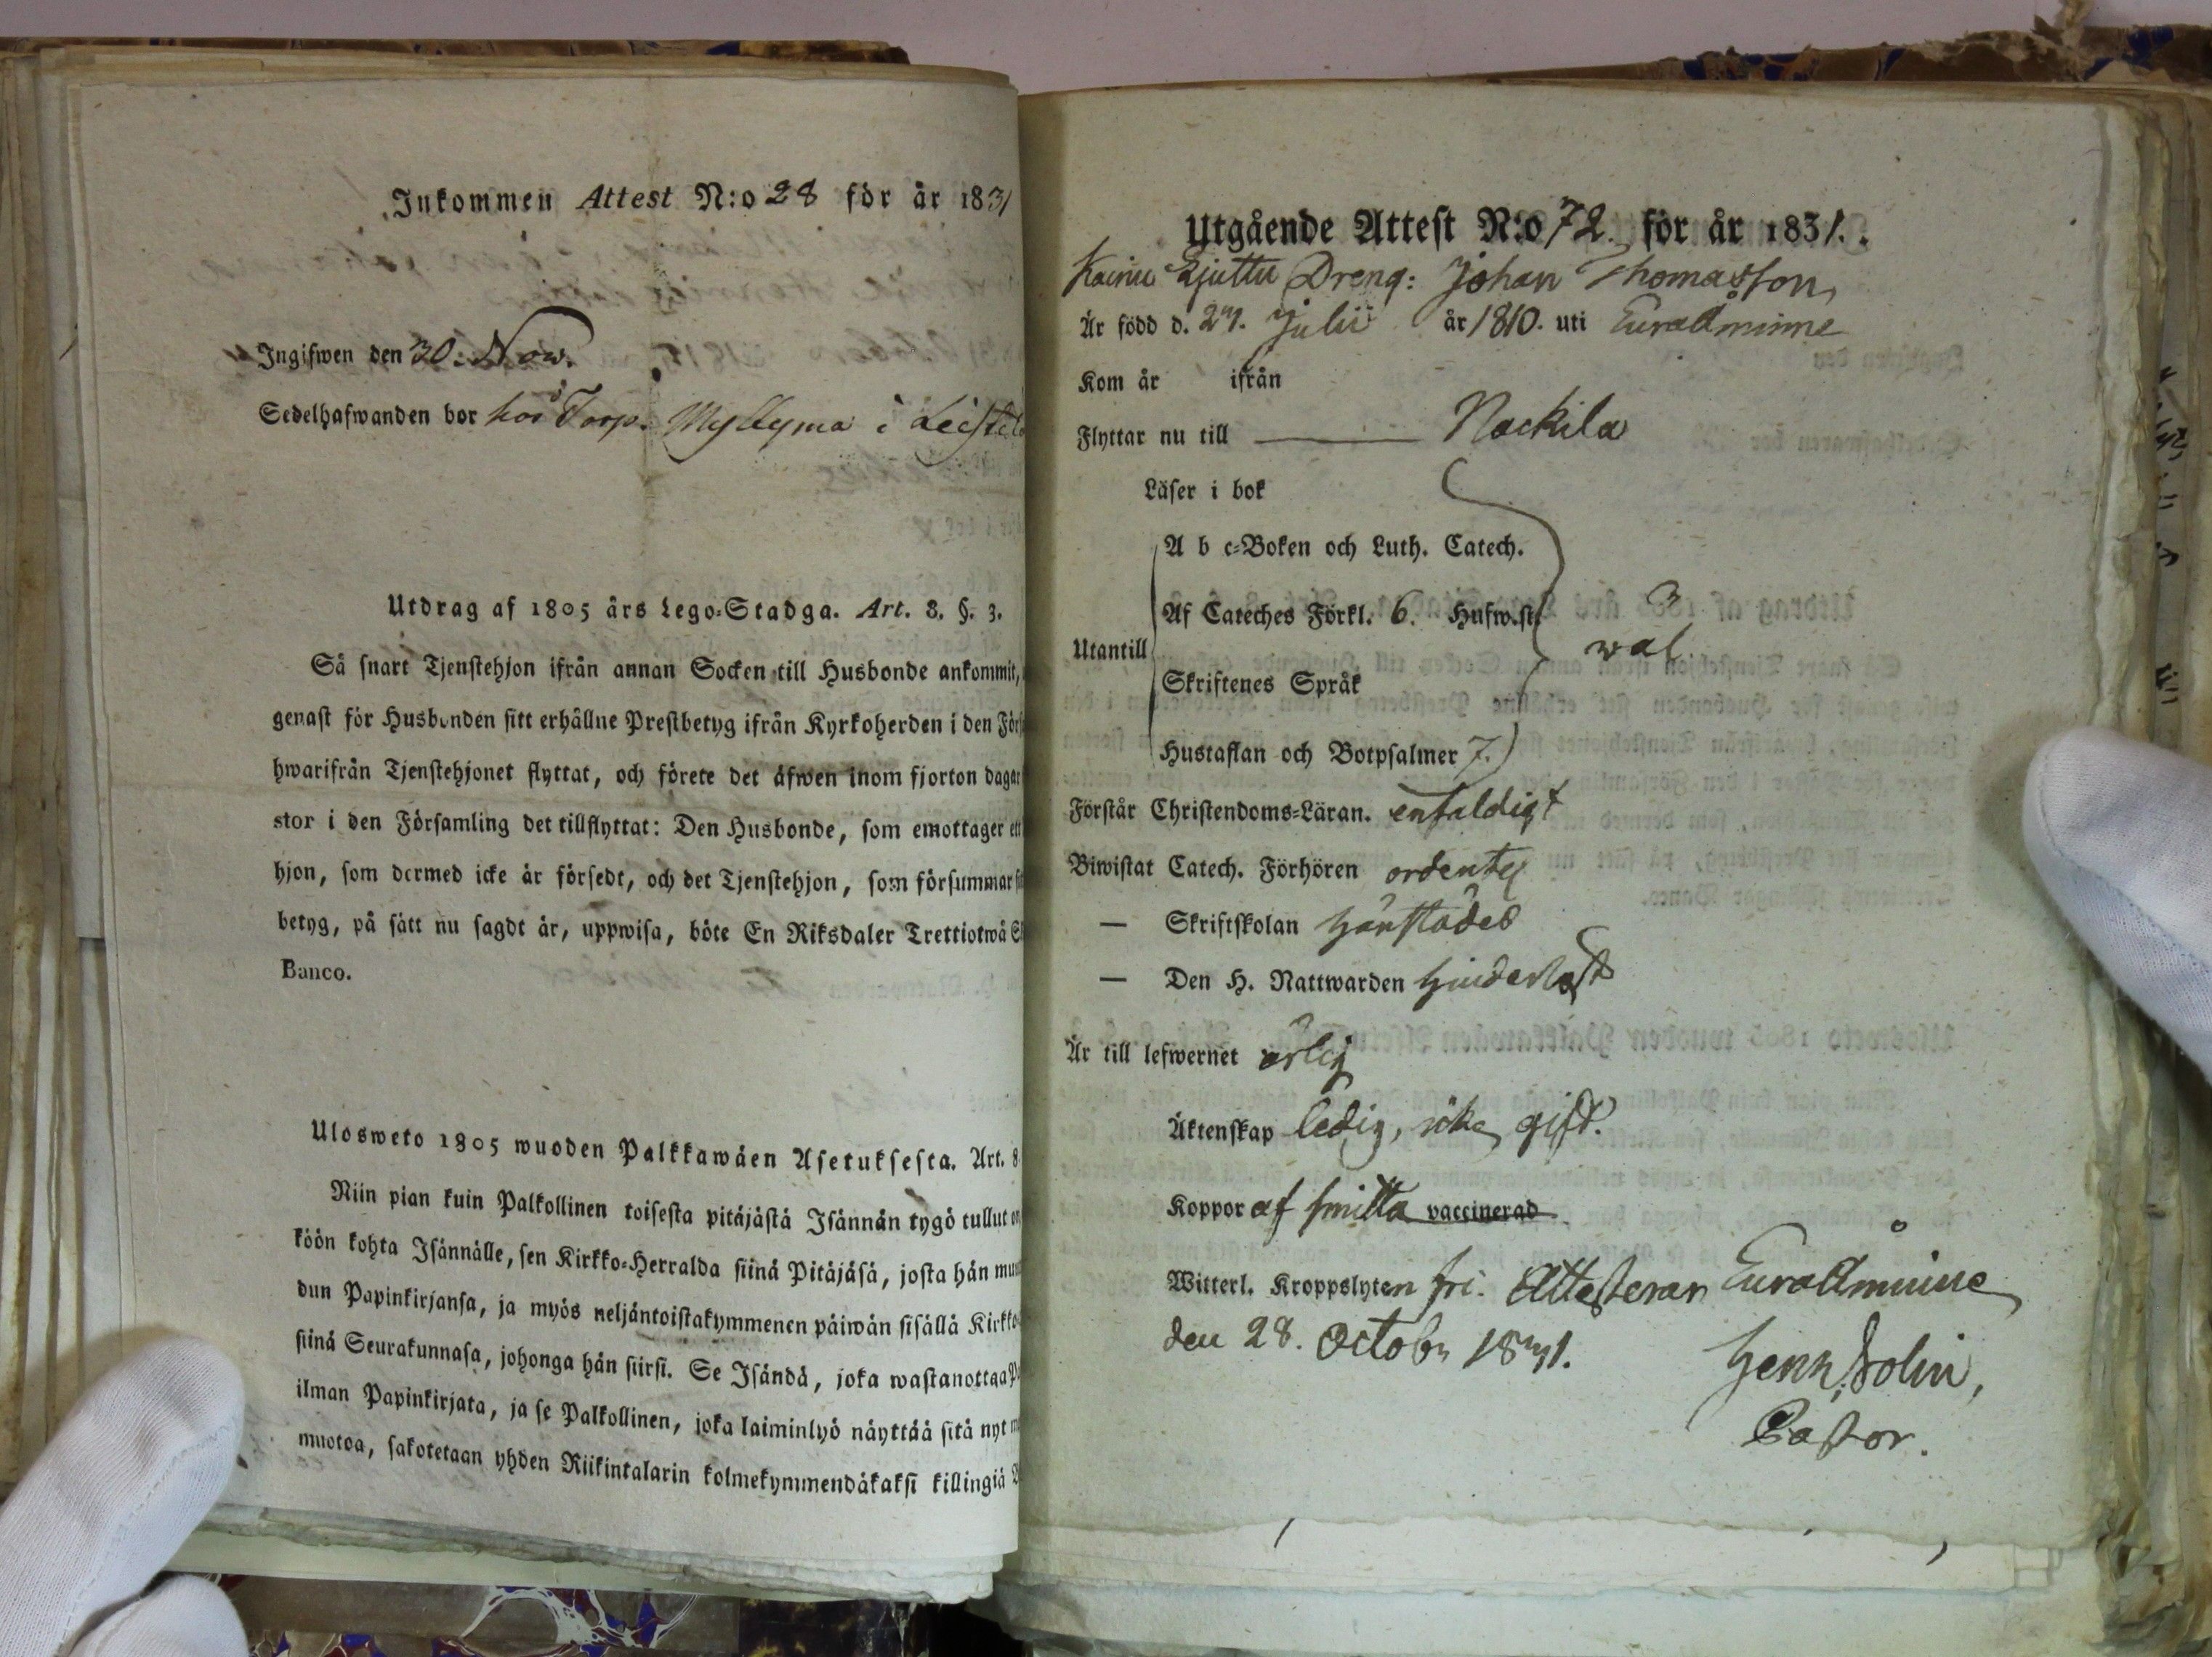 Inkommen Attest N:o 28 för år 1831
Ingifwen den 30. Nov.
Sedelhafwanden bor hos Torp. Myllymä i
Utdrag af 1805 års Lego-Stadga. Art. 8. §. 3.
Så snart Tjenstehjon ifrån annan Socken till Husbonde ankommit,
genast för Husbonden sitt erhållne Prestbetyg ifrån Kyrkoherden i den
hwarifrån Tjenstehjonet flyttat, och förete det äfwen inom fjorton dagar
stor i den Församling det tillflyttat: Den Husbonde, som emottager ett
hjon, som dermed icke är försedt, och det Tjenstehjon, som försummar
betyg, på sätt nu sagdt är, uppwisa, böte En Riksdaler Trettiotwå
Banco.
Ulosweto 1805 wuoden Palkkawäen Asetuksesta. Art. 8
Niin pian kuin Palkollinen toisesta pitäjästä Isännän tygö tullut on
köön kohta Isännälle, sen Kirkko-Herralda siinä Pitäjäsä, josta hän
dun Papinkirjansa, ja myös neljäntoistakymmenen päiwän sisällä
siinä Seurakunnasa, johonga hän siirsi. Se Isändä, joka wastanottaa
ilman Papinkirjata, ja se Palkollinen, joka laiminlyö näyttää sitä nyt
muotoa, sakotetaan yhden Riikintalarin kolmekymmendäkaksi killingiä
Utgående Attest N:o 72. för år 1831.
Dreng: Johan Thomasson,
Är född d. 27. Julii år 1810. uti Euraåminne
Kom år ifrån
Flyttar nu till Nackila
Läser i bok
A b c-Boken och Luth. Catech.
Af Cateches Förkl. 6. Hufw.st.
Utantill wäl.
Skriftenes Språk
Hustaflan och Botpsalmer 7.
Förstår Christendoms-Läran. enfaldigt
Biwistat Catech. Förhören ordentel
— Skriftskolan härstädes
— Den H. Nattwarden hinderlöst
Är till lefwernet ärlig
Äktenskap ledig, icke gift.
Koppor af smitta vaccinerad
Witterl. Kroppslyten fri. Attesterar Euraåminne
den 28. Octobr 1831.
Henr,
Pastor.